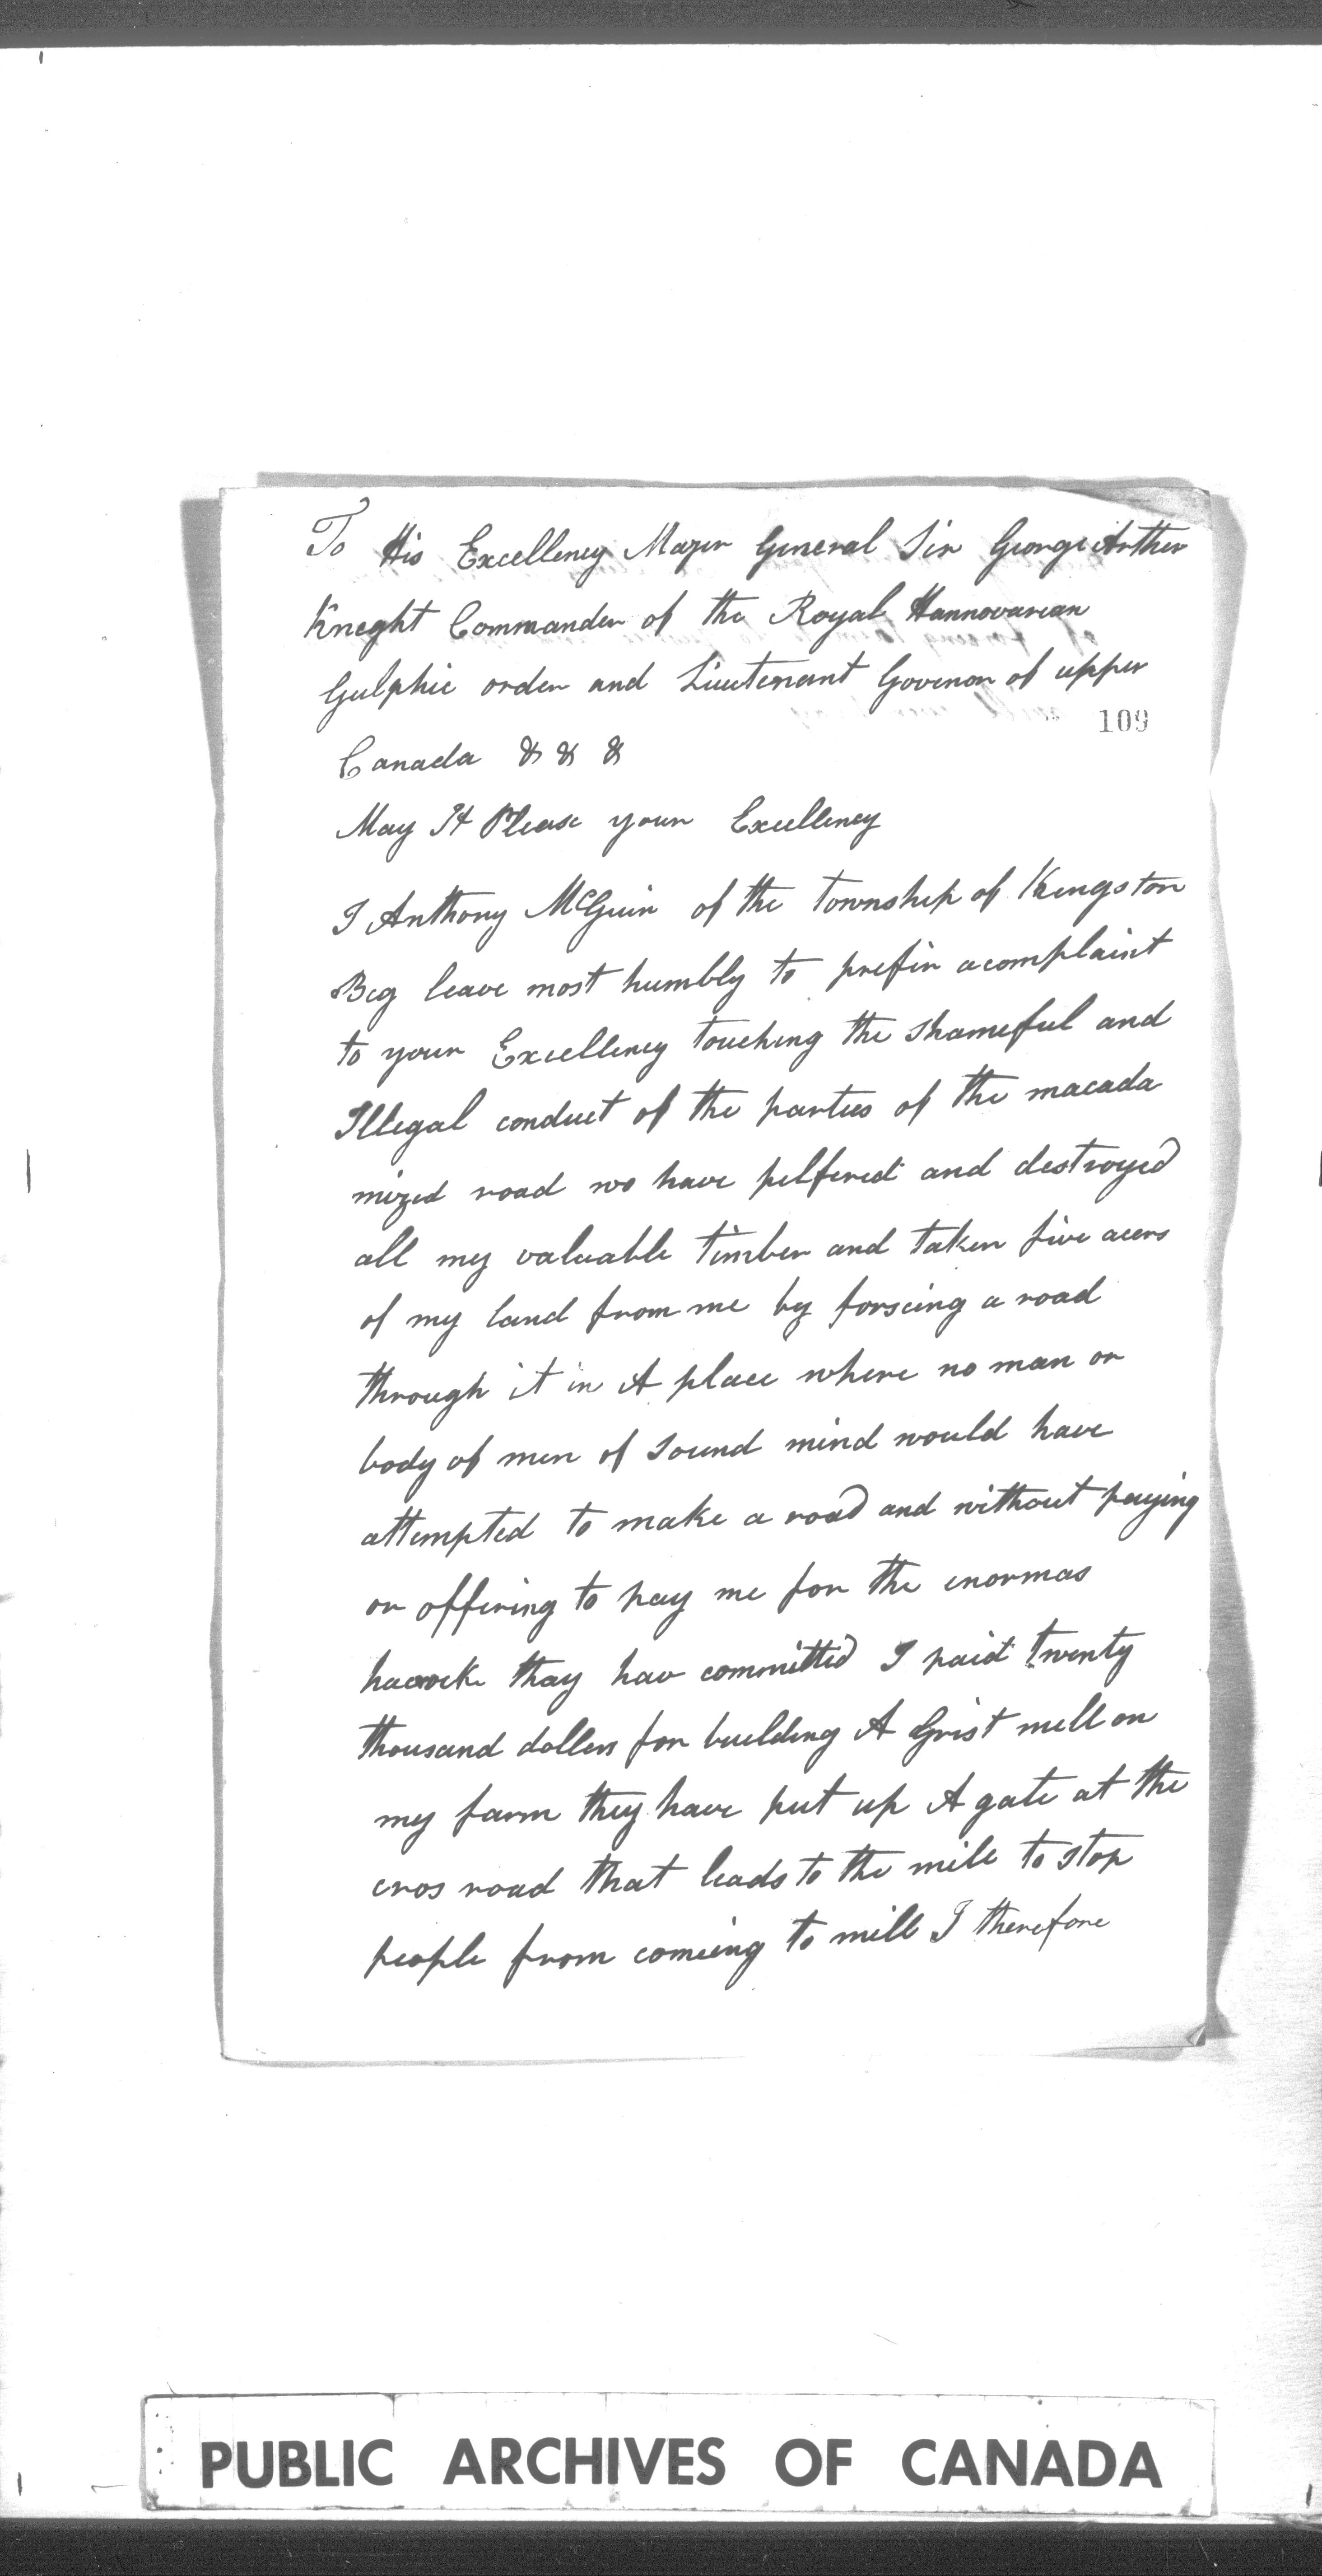 To His Excellency Mager General Sir George Arther
Kneght Commander of the Royal Hannovarian
Gulphic order and Lieutenant Govenor of upper
109
Canada & & &
May It Please your Excellency
I Anthony McGuin of the township of Kengston
Beg leave most humbly to prefer a complaint
to your Excellency touching the shameful and
Illegal conduct of the parties of the macada
mized road wo have pelfered and destroyed
all my valuable timber and taken five acers
of my land from me by forscing a road
through it in A place where no man or
body of men of sound mind would have
attempted to make a road and without paying
or offering to pay me for the enormas
havock thay hav committed I paid twenty
thousand dollers for building A Grist mill on
my farm they have put up A gate at the
cros road that leads to the mill to stop
people from comeing to mill I therefore
PUBLIC ARCHIVES OF CANADA